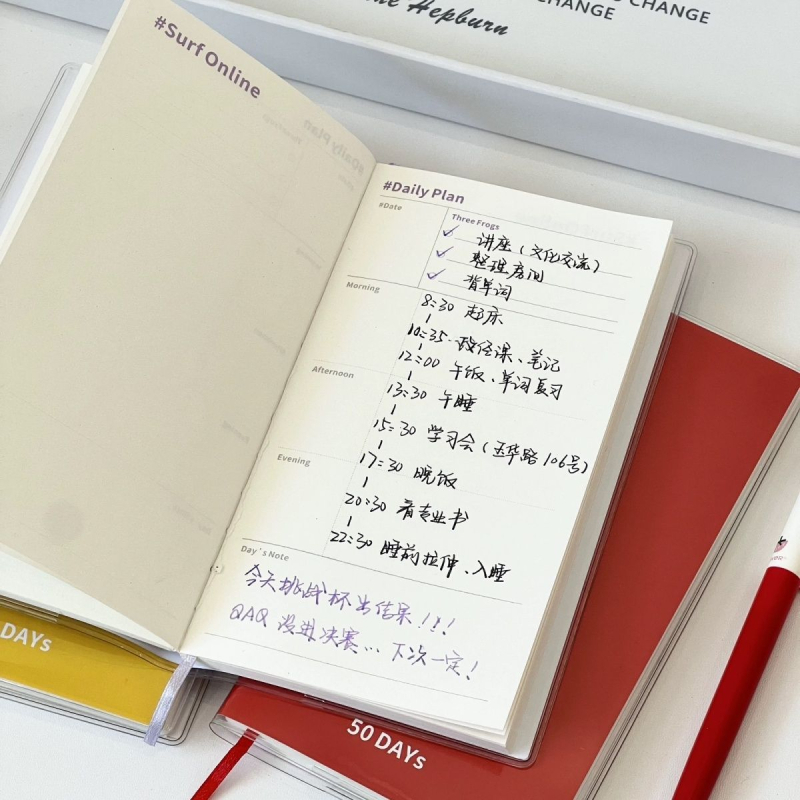 CHANGE
CHANGE
Hepburn
#Surf Online
#Daily Plan
#Date
Three Frogs
讲座（文化交流）
整理房间
背单词
Morning
8:30 起床
10:35 政经课、笔记
12:00 午饭、单词复习
Afternoon
13:30 午睡
15:30 学习会（玉华路106号）
17:30 晚饭
Evening
20:30 看专业书
22:30 睡前拉伸、入睡
Day's Note
今天挑战杯出结果!!!
QAQ 没进决赛… 下次一定!
DAYs
50 DAYs